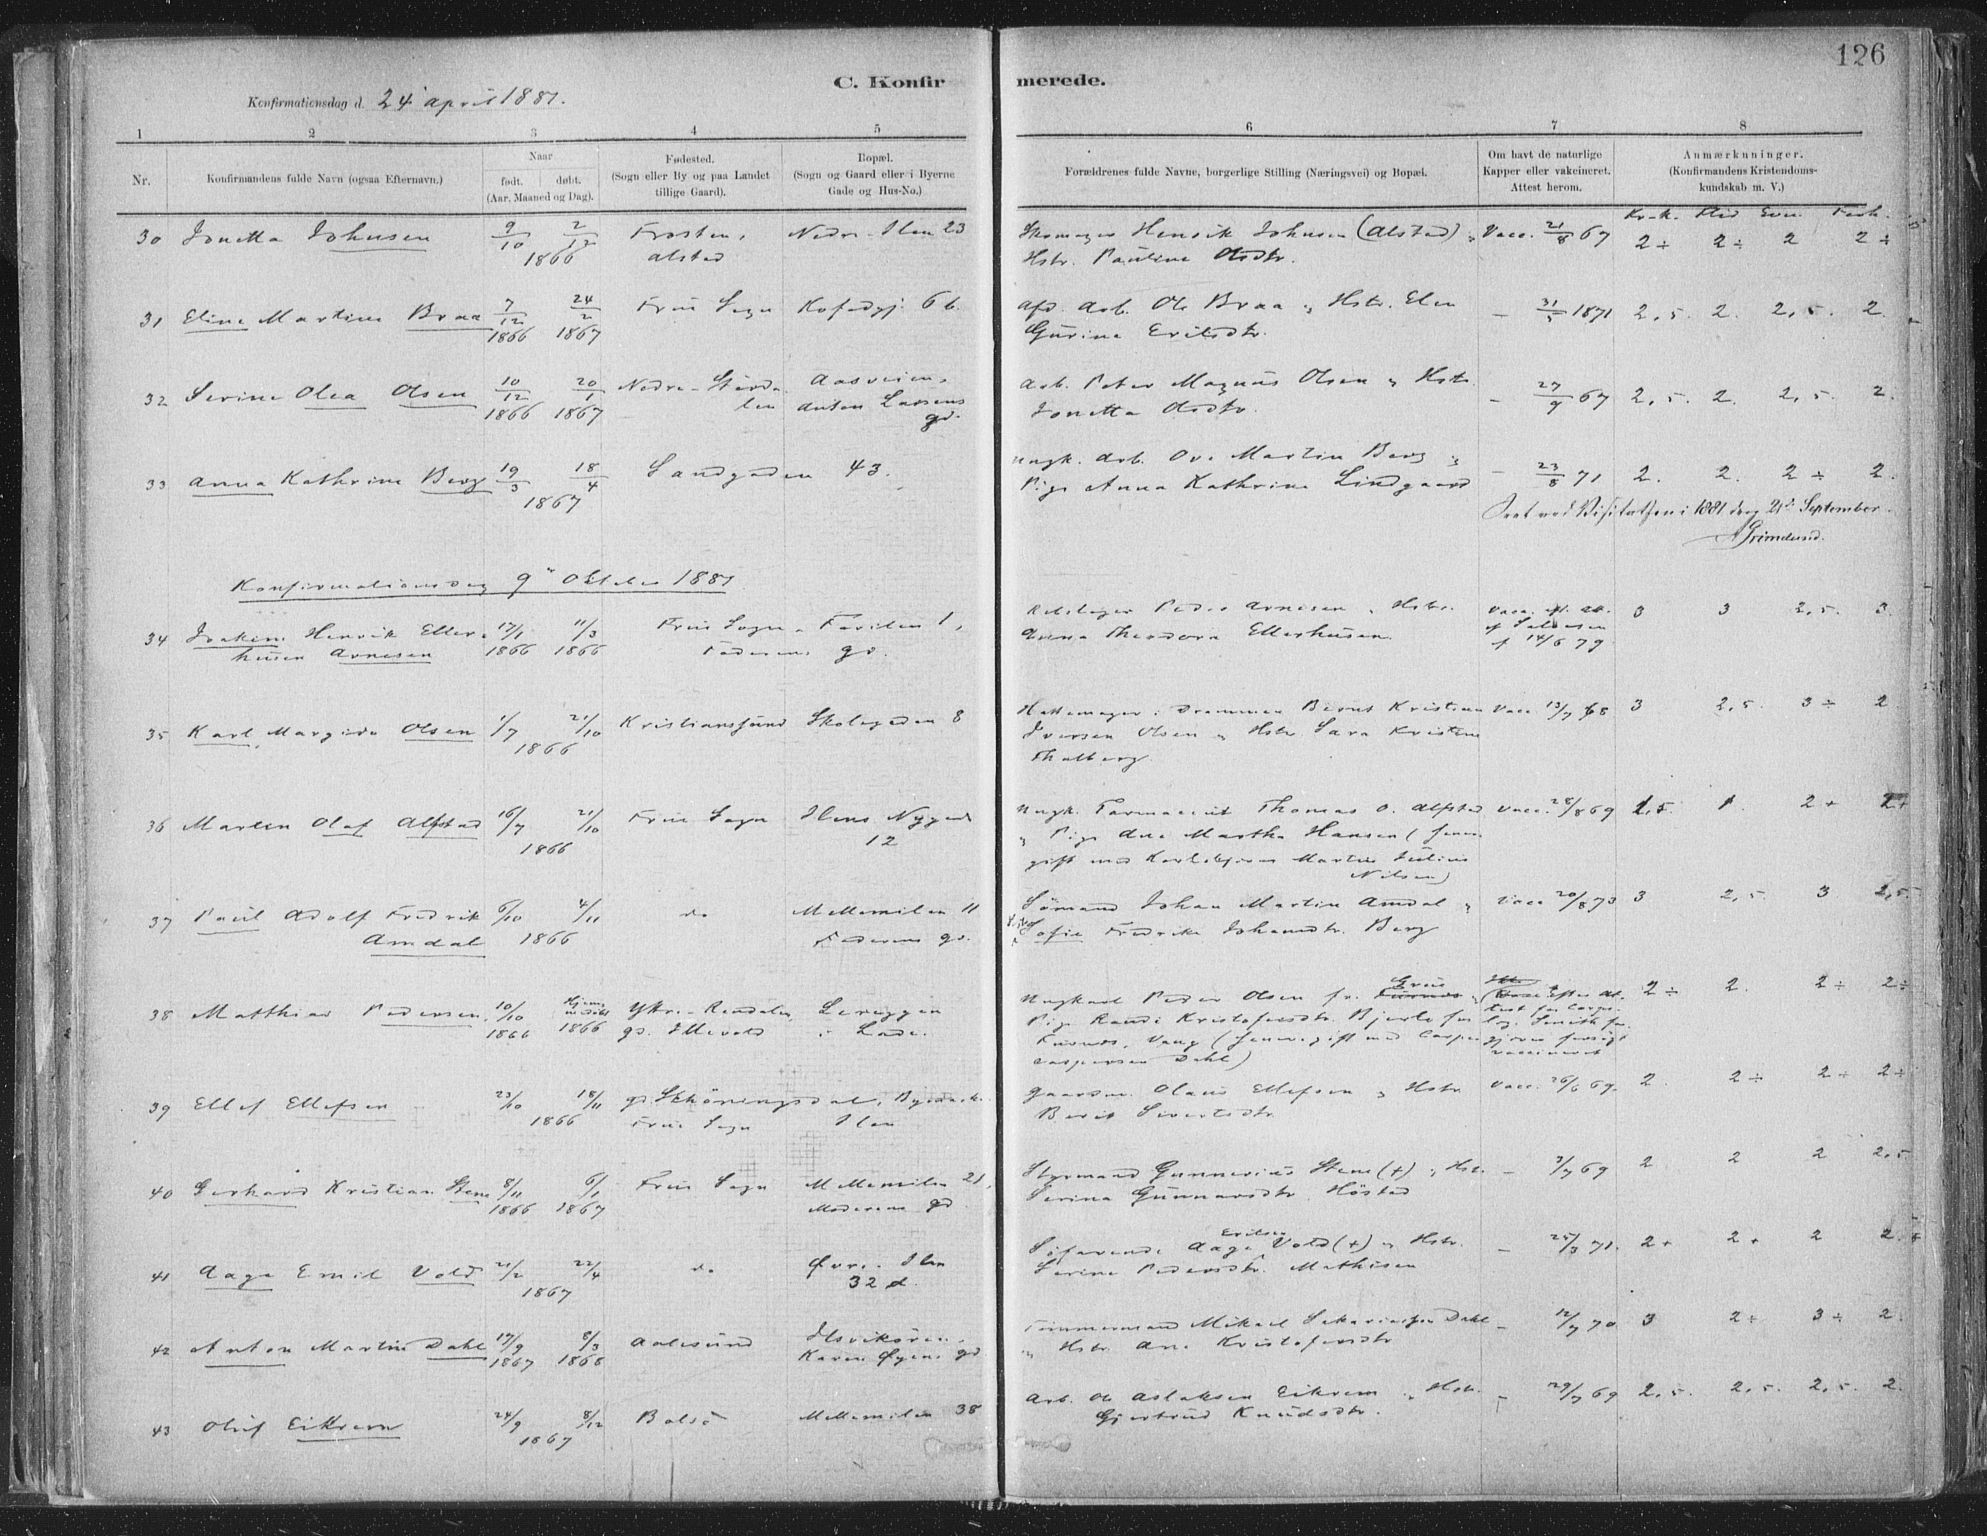 126
C. Konfirmerede.
Konfirmationsdag d. 24 april 1881.
1 2 3 4 5 6 7 8
Nr. Konfirmandens fulde Navn (ogsaa Efternavn.) Naar født. døbt. (Aar, Maaned og Dag).
Fødested. (Sogn eller By og paa Landet tillige Gaard).
Bopæl. (Sogn og Gaard eller i Byerne Gade og Hus-No.)
Forældrenes fulde Navne, borgerlige Stilling (Næringsvei) og Bopæl.
Om havt de naturlige Kapper eller vakcineret. Attest herom.
Anmærkninger. (Konfirmandens Kristendomskundskab m. V.)
30 Jonetta Johnsen 9/10 2/12 1866 Frosten, Alstad Nedre Ilen 23 Skomager Henrik Johnsen (Alstad) & Hstr. Pauline Olsdtr. Vacc. 21/8 67 2÷ 2÷ 2 2÷
31 Eline Martine Braa 7/12 1866 24/2 1867 Frue Sogn 6 b. afd. Arb. Ole Braa & Hstr. Elen Gurine Eriksdtr. – 31/5 1871 2,5. 2. 2,5. 2.
32 Serine Olea Olsen 10/12 1866 20/1 1867 Nedre-Stjørdalen Aasveien, Anton Larsens gd. Arb. Peter Magnus Olsen & Hstr. Jonetta Olsdtr. – 27/9 67 2,5. 2. 2,5. 2.
33 Anna Kathrine Berg 19/3 18/4 1867 Sandgaden 43. Ungk. Arb. Ove Martin Berg & Pige Anna Kathrine Lindgaard – 23/8 71 2. 2. 2÷ 2.
Seet ved Visitatsen i 1881 den 21de September.
Grimelund.
Konfirmationsdag 9de Oktober 1881
34 Joakim Henrik Ellerhusen Arnesen 17/1 1866 11/3 1866 Frue Sogn 1, Faderens gd. Rebslager Peder Arnesen & Hstr. Anna Theodora Ellerhusen. 14/6 79 3 3 2,5. 3.
35 Karl Margido Olsen 1/7 21/10 1866 Kristianssund Skolegaden 8 Hattemager i Drammen Bernt Kristian Iversen Olsen & Hstr. Sara Kristine Thalberg. Vacc. 13/7 68 3 2,5. 3÷ 2
36 Martin Olaf Alfstad 16/7 21/10 1866 Frue Sogn Ilens Nygade 12 Ungk. Farmaceut Thomas O. Alfstad & Pige Ane Martha Hansen (senere gift med Martin Julius Nilsen) Vacc. 28/8 69 1,5. 1. 2+ 2+
37 Paul Adolf Fredrik Amdal 6/10 4/11 1866 do Mellemilen 11 Faderens gd. Sømand Johan Martin Amdal & Sofie Fredrike Johansdtr. Berg Vacc. 20/8 73 3 2,5. 3 2,5.
38 Matthias Pedersen 10/10 1866 Hjemmedøbt 1866 Ytre-Rendalen, gd. Lade. Ungkarl Peder Olsen & Pige Randi Kristofersdtr. Bjerke fra Furnes, Vang (senere gift med Casper Caspersen Dahl) 2÷ 2. 2÷ 2÷
39 Ellef Ellefsen 23/10 18/11 1866 gd. Schøningsdal, Frue Sogn Ilen Gaardm. Olaus Ellefsen & Hstr. Berit Sivertsdtr. Vacc. 26/6 69. 2. 2÷ 2÷ 2÷
40 Gerhard Kristian Stene 8/11 1866 6/1 1867 Frue Sogn Mellemilen 21, Moderens gd. Styrmand Gunnerius Stene (+) & Hstr. Serina Gunnarsdtr. Høstad – 3/7 69 2 2 2 2,5
41 Aage Emil Vold 21/2 22/4 1867 do Øvre-Ilen 32 d. Søfarende Aage Eriksen Vold (+) & Hstr. Serine Pedersdtr. Mathisen – 25/3 71. 2+ 2+ 2 2.
42 Anton Martin Dahl 17/9 1867 8/3 1868 Aalesund Ilsvikøren, Karen Øyens gd Tømmermand Mikael Sakariassen Dahl & Hstr. Ane Kristofersdtr – 12/7 70 3 2÷ 3÷ 2.
43 Oluf Eikrem 24/9 8/12 1867 Bolsø Mellemilen 38 Arb. Ole Aslaksen Eikrem & Hstr. Gjertrud Knudsdtr. – 29/7 69 2,5. 2,5. 2,5. 2.